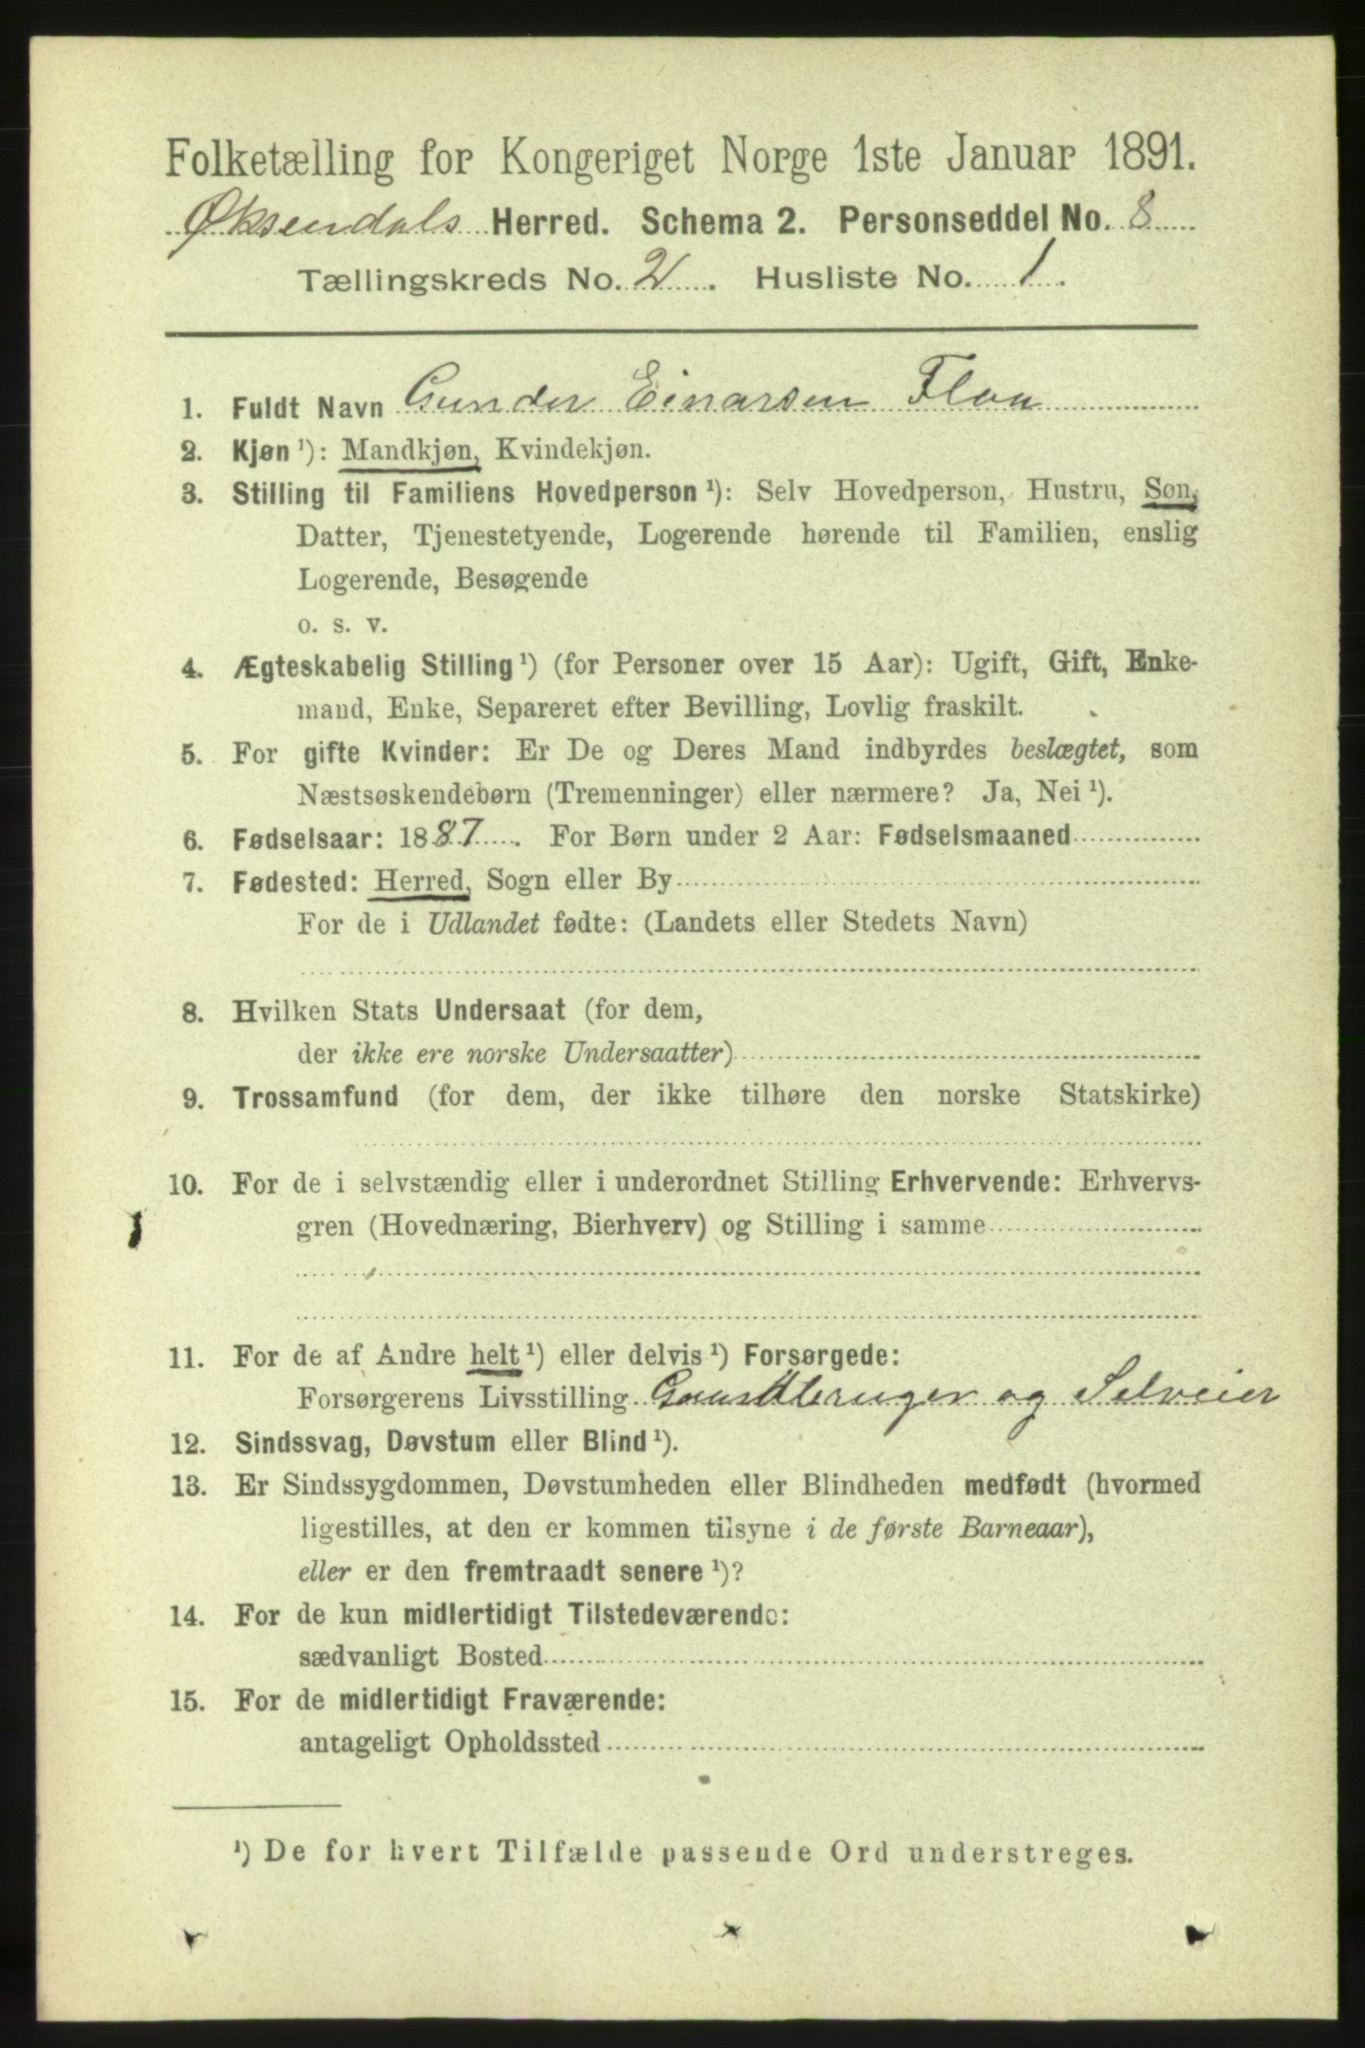 Folketælling for Kongeriget Norge 1ste Januar 1891.
Øksendals Herred. Schema 2. Personseddel No. 8
Tællingskreds No. 2. Husliste No. 1.
1. Fuldt Navn Gunder Einarsen Floa
2. Kjøn ¹): Mandkjøn, Kvindekjøn.
3. Stilling til Familiens Hovedperson ¹): Selv Hovedperson, Hustru, Søn,
Datter, Tjenestetyende, Logerende hørende til Familien, enslig
Logerende, Besøgende
o. s. v.
4. Ægteskabelig Stilling ¹) (for Personer over 15 Aar): Ugift, Gift, Enke-
mand, Enke, Separeret efter Bevilling, Lovlig fraskilt.
5. For gifte Kvinder: Er De og Deres Mand indbyrdes beslægtet, som
Næstsøskendebørn (Tremenninger) eller nærmere? Ja, Nei ¹).
6. Fødselsaar: 1887. For Børn under 2 Aar: Fødselsmaaned
7. Fødested: Herred, Sogn eller By
For de i Udlandet fødte: (Landets eller Stedets Navn)
8. Hvilken Stats Undersaat (for dem,
der ikke ere norske Undersaatter)
9. Trossamfund (for dem, der ikke tilhøre den norske Statskirke)
10. For de i selvstændig eller i underordnet Stilling Erhvervende: Erhvervs-
gren (Hovednæring, Bierhverv) og Stilling i samme
11. For de af Andre helt ¹) eller delvis ¹) Forsørgede:
Forsørgerens Livsstilling Gaardbruger og Selveier
12. Sindssvag, Døvstum eller Blind ¹).
13. Er Sindssygdommen, Døvstumheden eller Blindheden medfødt (hvormed
ligestilles, at den er kommen tilsyne i de første Barneaar),
eller er den fremtraadt senere ¹)?
14. For de kun midlertidigt Tilstedeværende:
sædvanligt Bosted
15. For de midlertidigt Fraværende:
antageligt Opholdssted
¹) De for hvert Tilfælde passende Ord understreges.